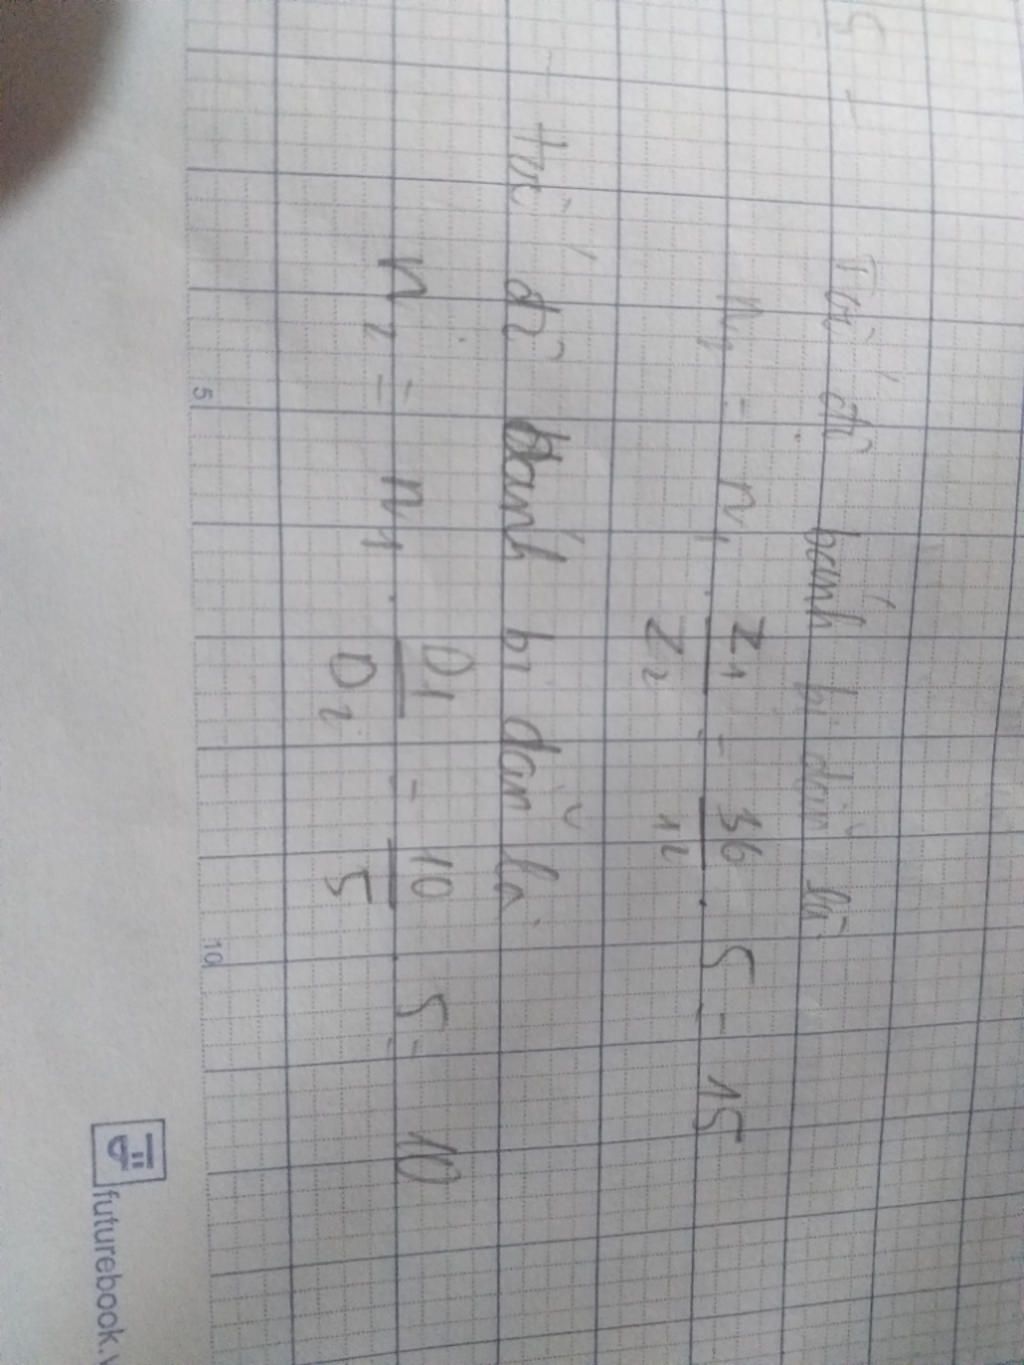 5 -
Tốc độ bánh bị dẫn là
n₂ = n₁ . Z₁ = 36 . 5 = 15
Z₂ 12
- tốc độ bánh bị dẫn là
n₂ = n₁ . D₁ = 10 . 5 = 10
D₂ 5
5
10
futurebook.v